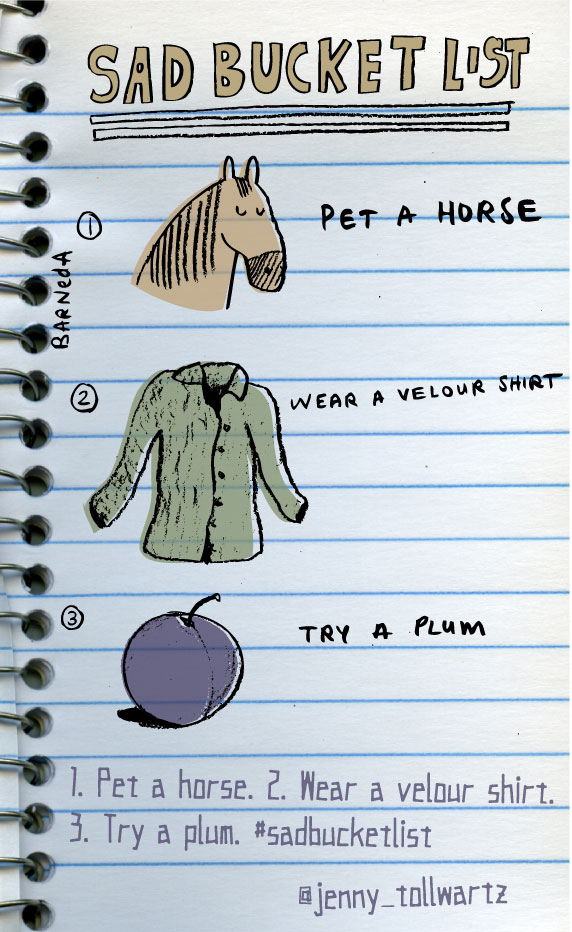 SAD BUCKET LIST
1
PET A HORSE
BARNEDA
2
WEAR A VELOUR SHIRT
3
TRY A PLUM
1. Pet a horse. 2. Wear a velour shirt.
3. Try a plum. #sadbucketlist
@jenny_tollwartz